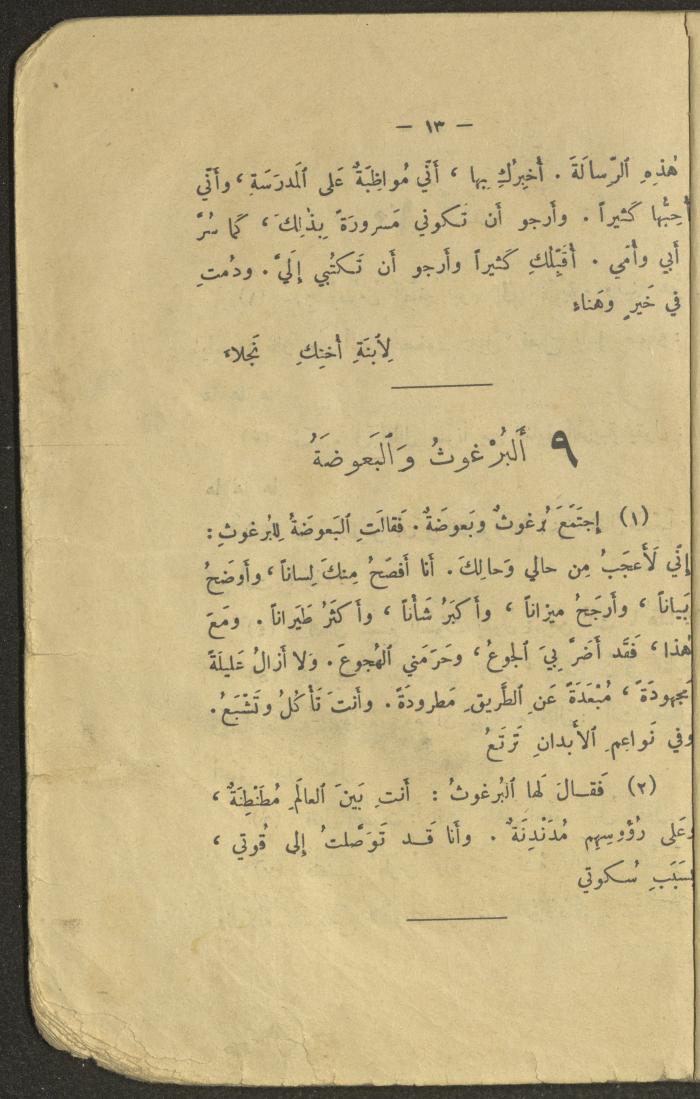 — ١٣ —
هٰذِهِ ٱلرِّسالَةَ . أُخبِرُكِ بِها ، أَنّي مُواظِبَةٌ عَلى ٱلمَدرَسَةِ ، وأَنّي
أُحِبُّها كَثيراً . وأَرجو أَن تَكوني مَسرورَةً بِذٰلِكَ ، كَما سُرَّ
أَبي وأُمّي . أُقَبِّلُكِ كَثيراً وأَرجو أَن تَكتُبي إِلَيَّ . ودُمتِ
في خَيرٍ وهَناء
لِٱبنَةِ أُختِكِ نَجلاء
٩ أَلبُرْغوثُ وَٱلبَعوضَةُ
(١) إِجتَمَعَ بُرغوثٌ وبَعوضَةٌ . فَقالَتِ ٱلبَعوضَةُ لِلبُرغوثِ :
إِنّي لَأَعجَبُ مِن حالي وَحالِكَ . أَنا أَفصَحُ مِنكَ لِساناً ، وأَوضَحُ
بَياناً ، وأَرجَحُ ميزاناً ، وأَكبَرُ شَأْناً ، وأَكثَرُ طَيَراناً . ومَعَ
هذا ، فَقَد أَضَرَّ بِيَ ٱلجوعُ ، وحَرَمَني ٱلهُجوعَ . وَلا أَزالُ عَليلَةً
مَجهودَةً ، مُبْعَدَةً عَنِ ٱلطَّريقِ مَطرودَةً . وأَنتَ تَأْكُلُ وتَشْبَعُ .
وفي نَواعِمِ ٱلأَبدانِ تَرتَعُ
(٢) فَقـالَ لَها ٱلبُرغوثُ : أَنتِ بَينَ ٱلعالَمِ مُطَنْطِنَةٌ ،
وعَلى رُؤُوسِهِم مُدَنْدِنَةٌ . وأَنا قَـد تَوَصَّلتُ إِلى قُوتي ،
بِسَبَبِ سُكوتي